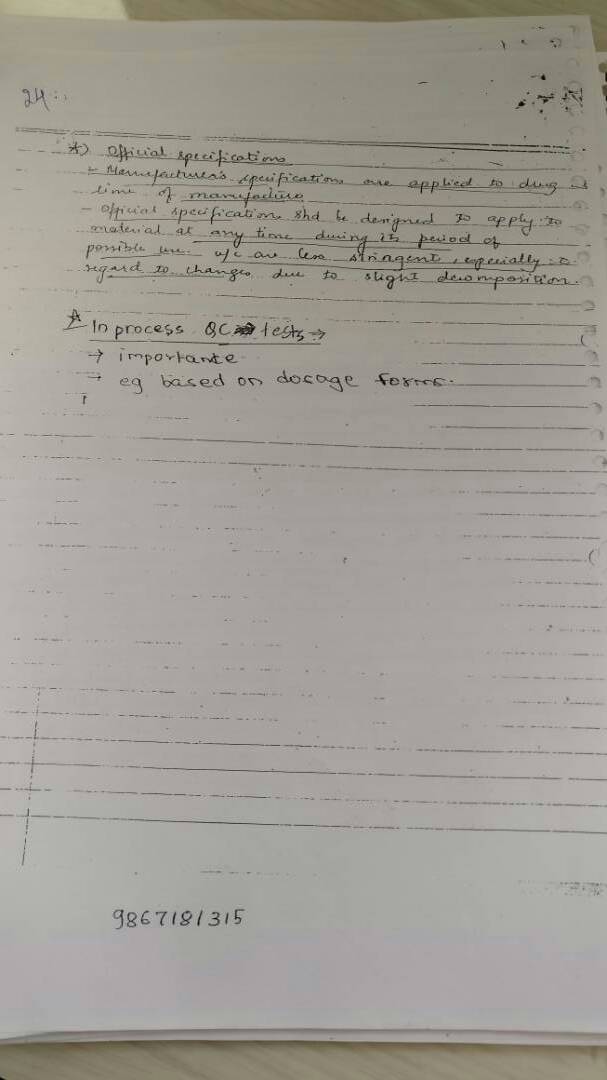 24
*) Official specifications
- Manufacturers specifications are applied to drug
time of manufacture
- Official specifications shd be designed to apply to
material at any time during its period of
possible use. w/c are less stringent, especially
regard to changes due to slight decomposition.
* In process QC tests →
→ importante
→ eg based on dosage forms.
9867181315